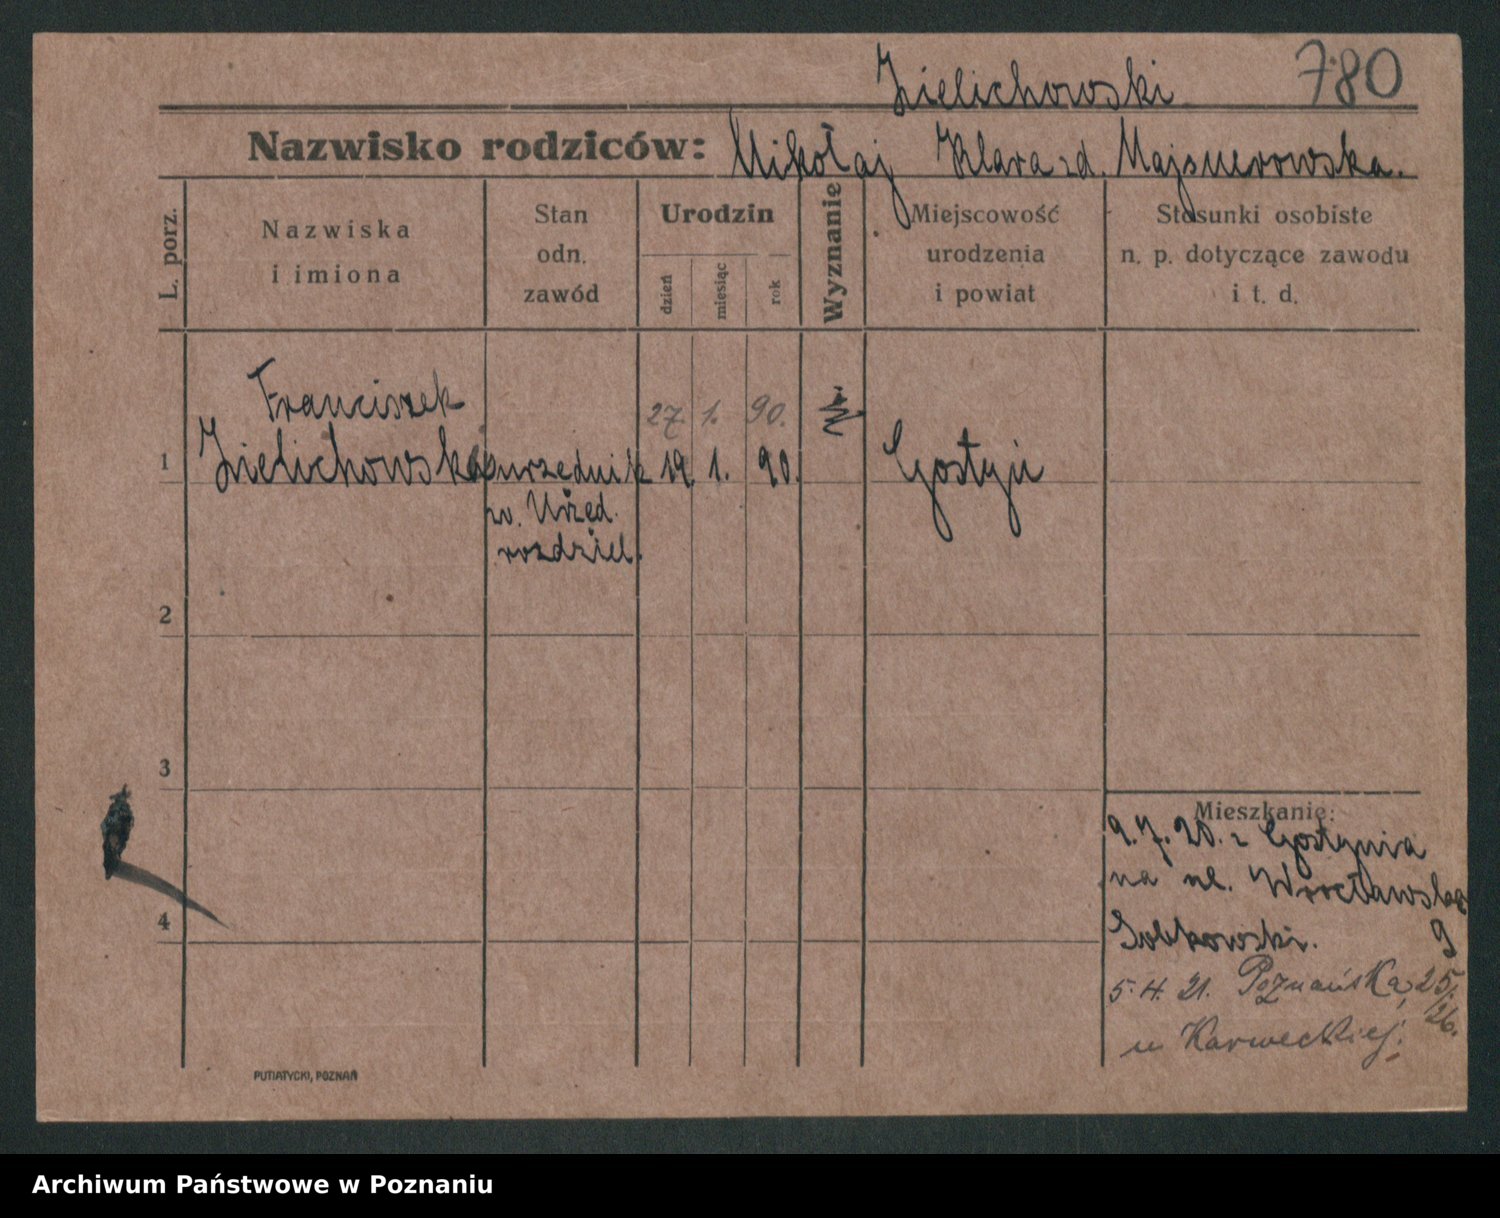 Zielichowski 780
Nazwisko rodziców: Mikołaj Klara zd. Majsnerowska.
L. porz.
Nazwiska
i imiona
Stan
odn.
zawód
Urodzin
dzień
miesiąc
rok
Wyznanie
Miejscowość
urodzenia
i powiat
Stosunki osobiste
n. p. dotyczące zawodu
i t. d.
Franciszek
27. 1. 90.
1 Zielichowski urzędnik 19. 1. 90. Gostyń
w. Urzęd.
rozdziel.
2
3
4
Mieszkanie:
9. 7. 20. z Gostynia
na ul. Wrocławską
9
5. 4. 21. Poznańska 25/
26.
u Karweckiej.
PUTIATYCKI, POZNAŃ
Archiwum Państwowe w Poznaniu